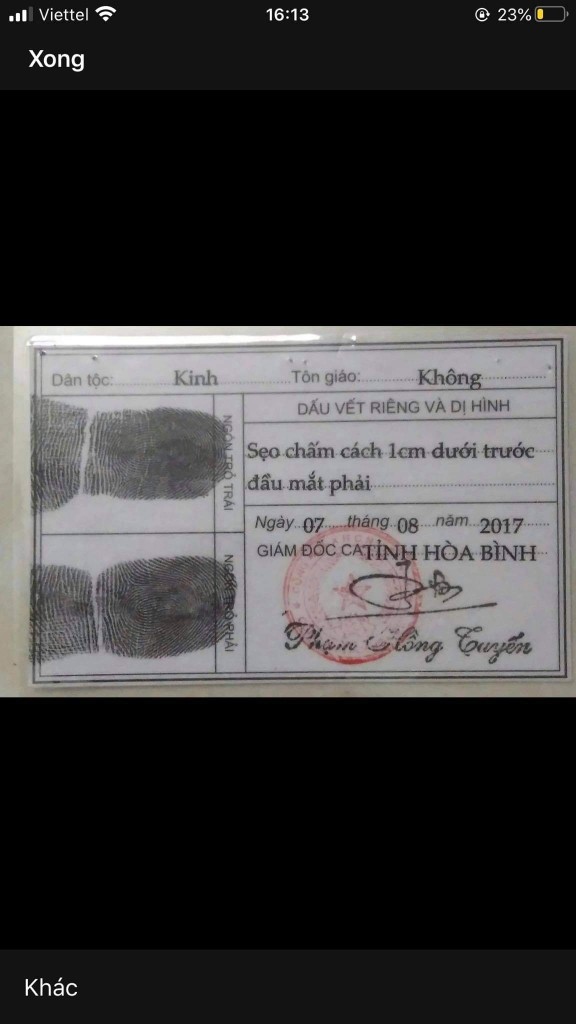 Viettel 16:13 23%
Xong
Dân tộc: Kinh Tôn giáo: Không
NGÓN TRỎ TRÁI
DẤU VẾT RIÊNG VÀ DỊ HÌNH
Sẹo chấm cách 1cm dưới trước
đầu mắt phải
NGÓN TRỎ PHẢI
Ngày 07 tháng 08 năm 2017
GIÁM ĐỐC CA TỈNH HÒA BÌNH
Phạm Hồng Tuyến
Khác